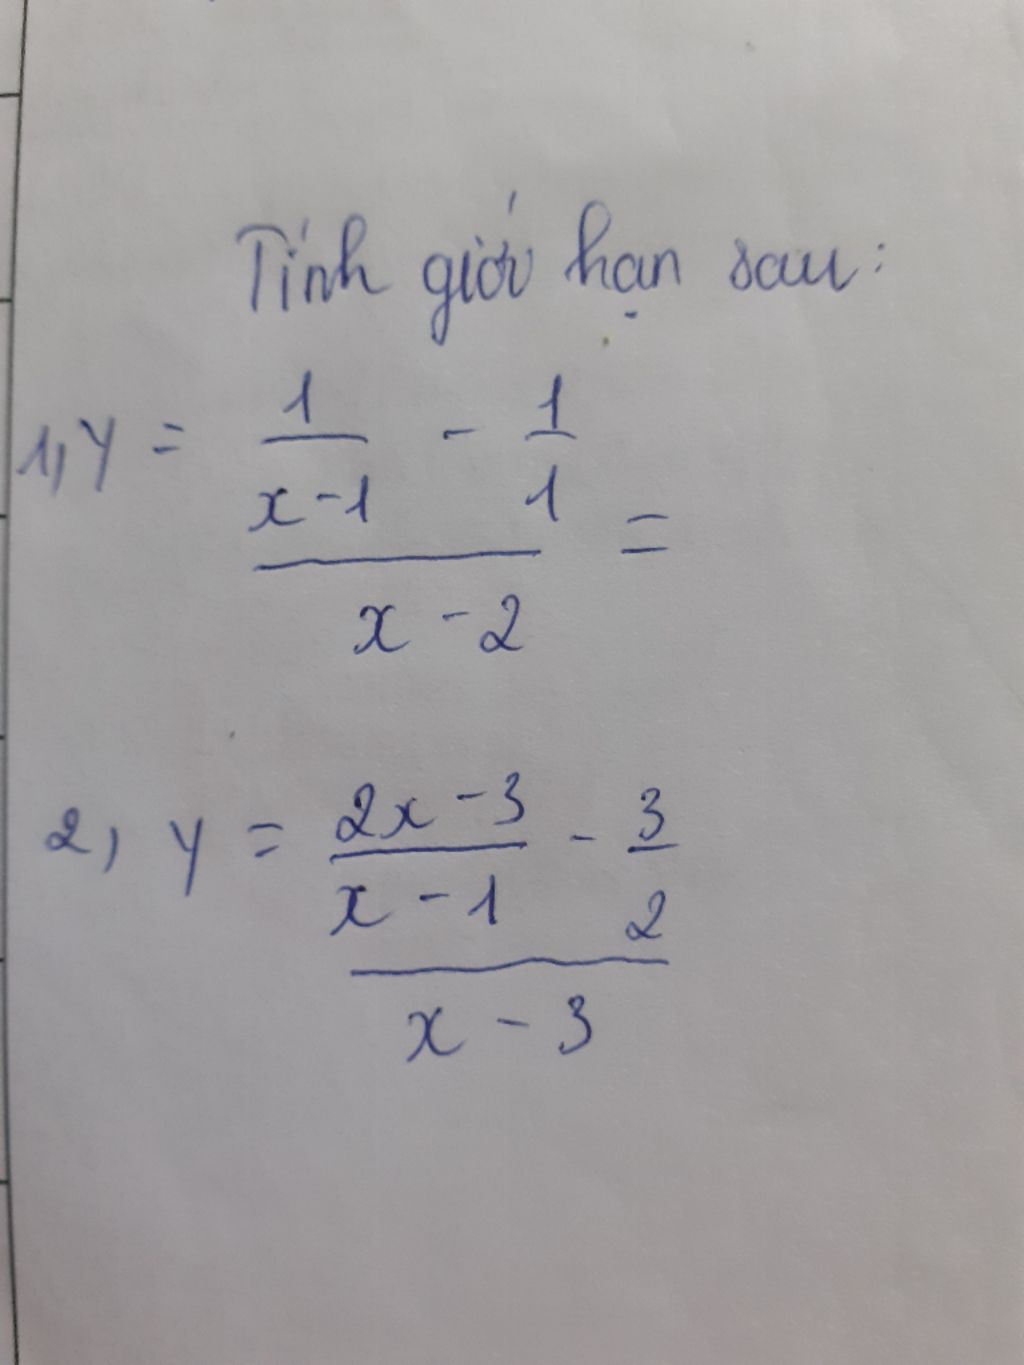 Tính giới hạn sau:
1, y = 1/(x-1) - 1/1
x - 2 =
2, y = (2x-3)/(x-1) - 3/2
x - 3